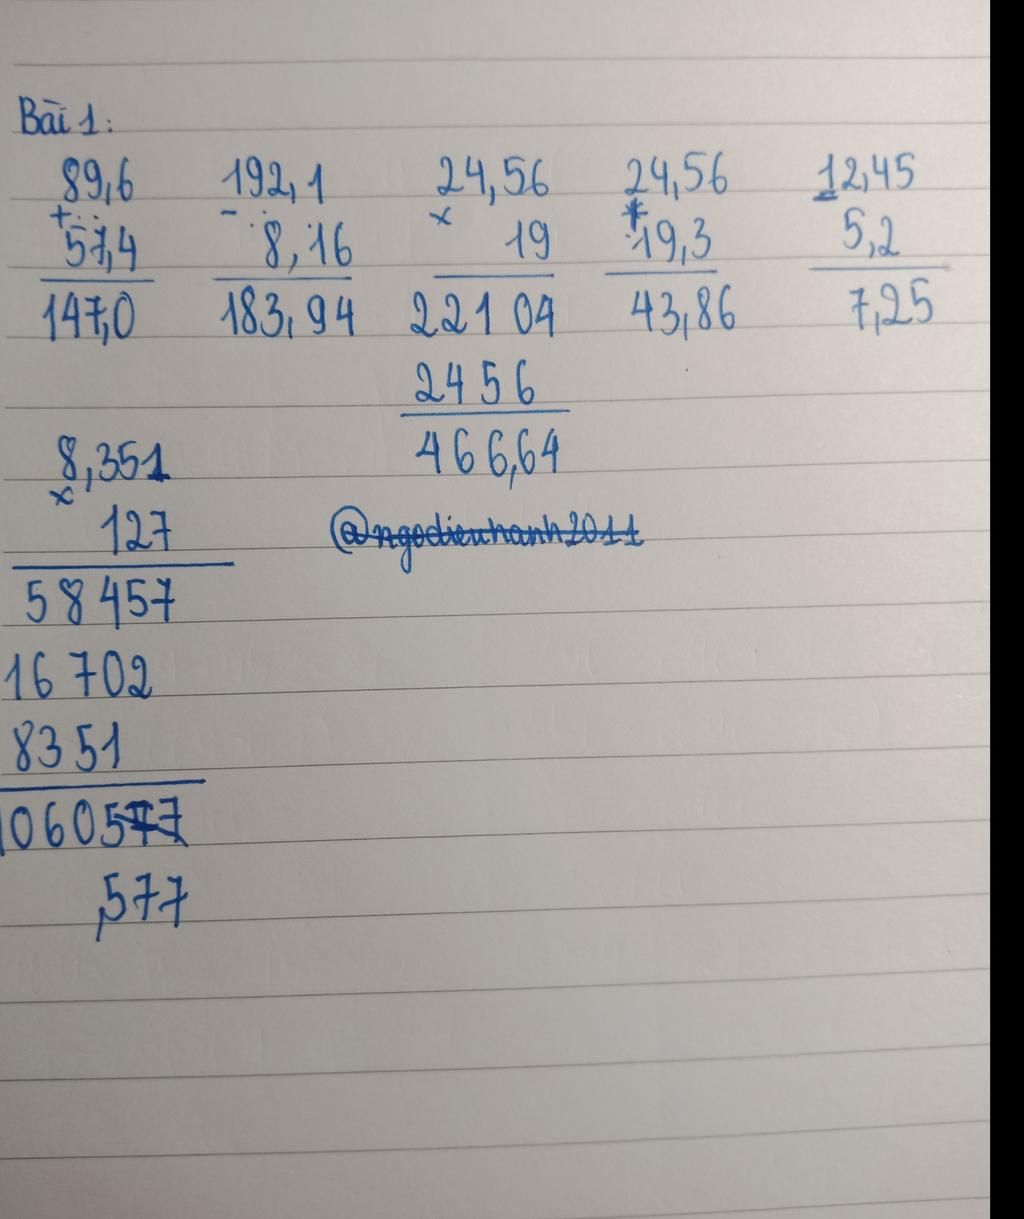 Bài 1:
89,6 192,1 24,56 24,56 12,45
+ - x + -
57,4 8,16 19 19,3 5,2
147,0 183,94 22104 43,86 7,25
2456
466,64
8,351
x
127
@ngodieuhanh2011
58457
16702
8351
1060577
,577